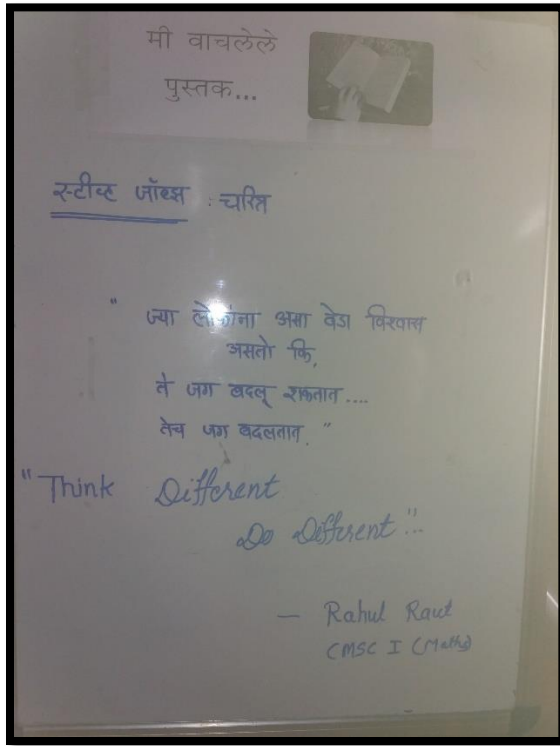 मी वाचलेले
पुस्तक...
स्टीव्ह जॉब्झ : चरित्र
" ज्या लोकांना असा वेडा विश्वास
असतो कि,
ते जग बदलू शकतात ....
तेच जग बदलतात. "
"Think Different
Do Different"..
— Rahul Raut
(MSC I (Maths)